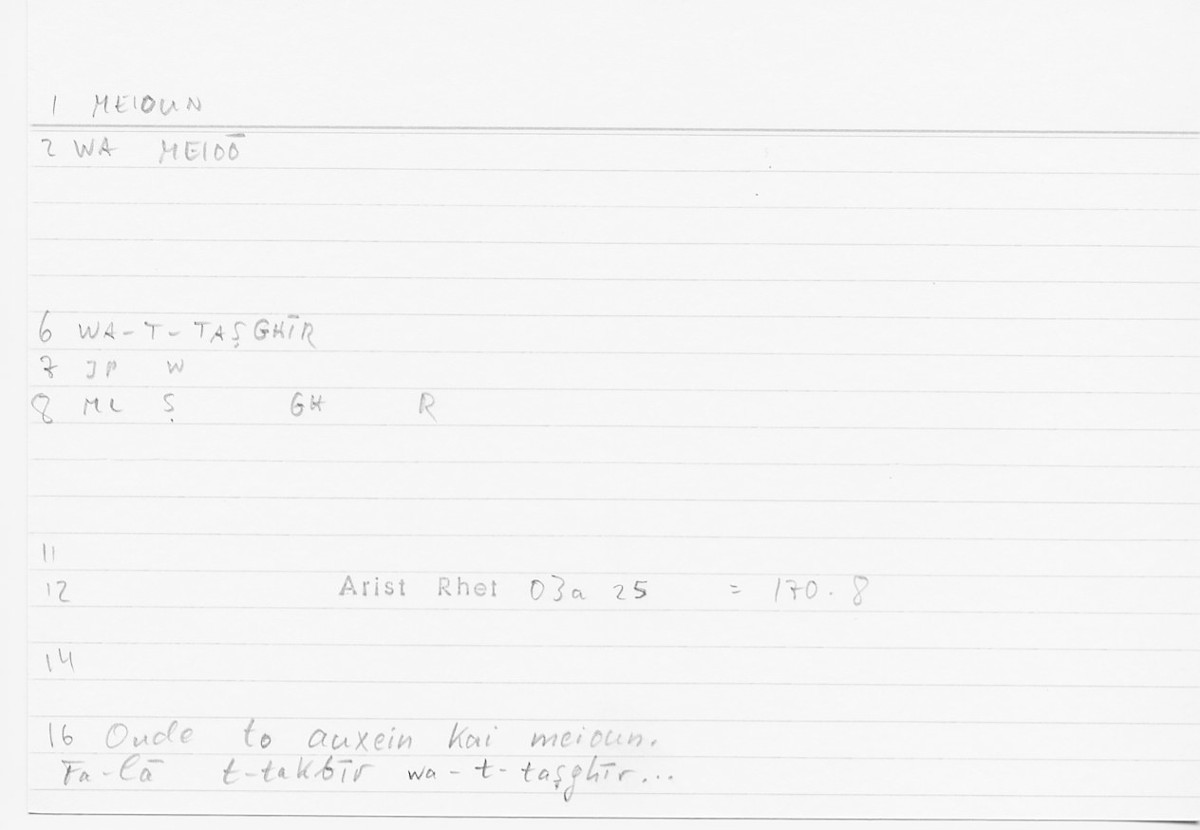 1 MEIOUN
2 WA MEIOŌ
6 WA-T-TAṢGHĪR
7 JP W
8 ML Ṣ GH R
11
12 Arist Rhet 03a 25 = 170.8
14
16 Oude to auxein kai meioun.
Fa-lā t-takbīr wa-t-taṣghīr...